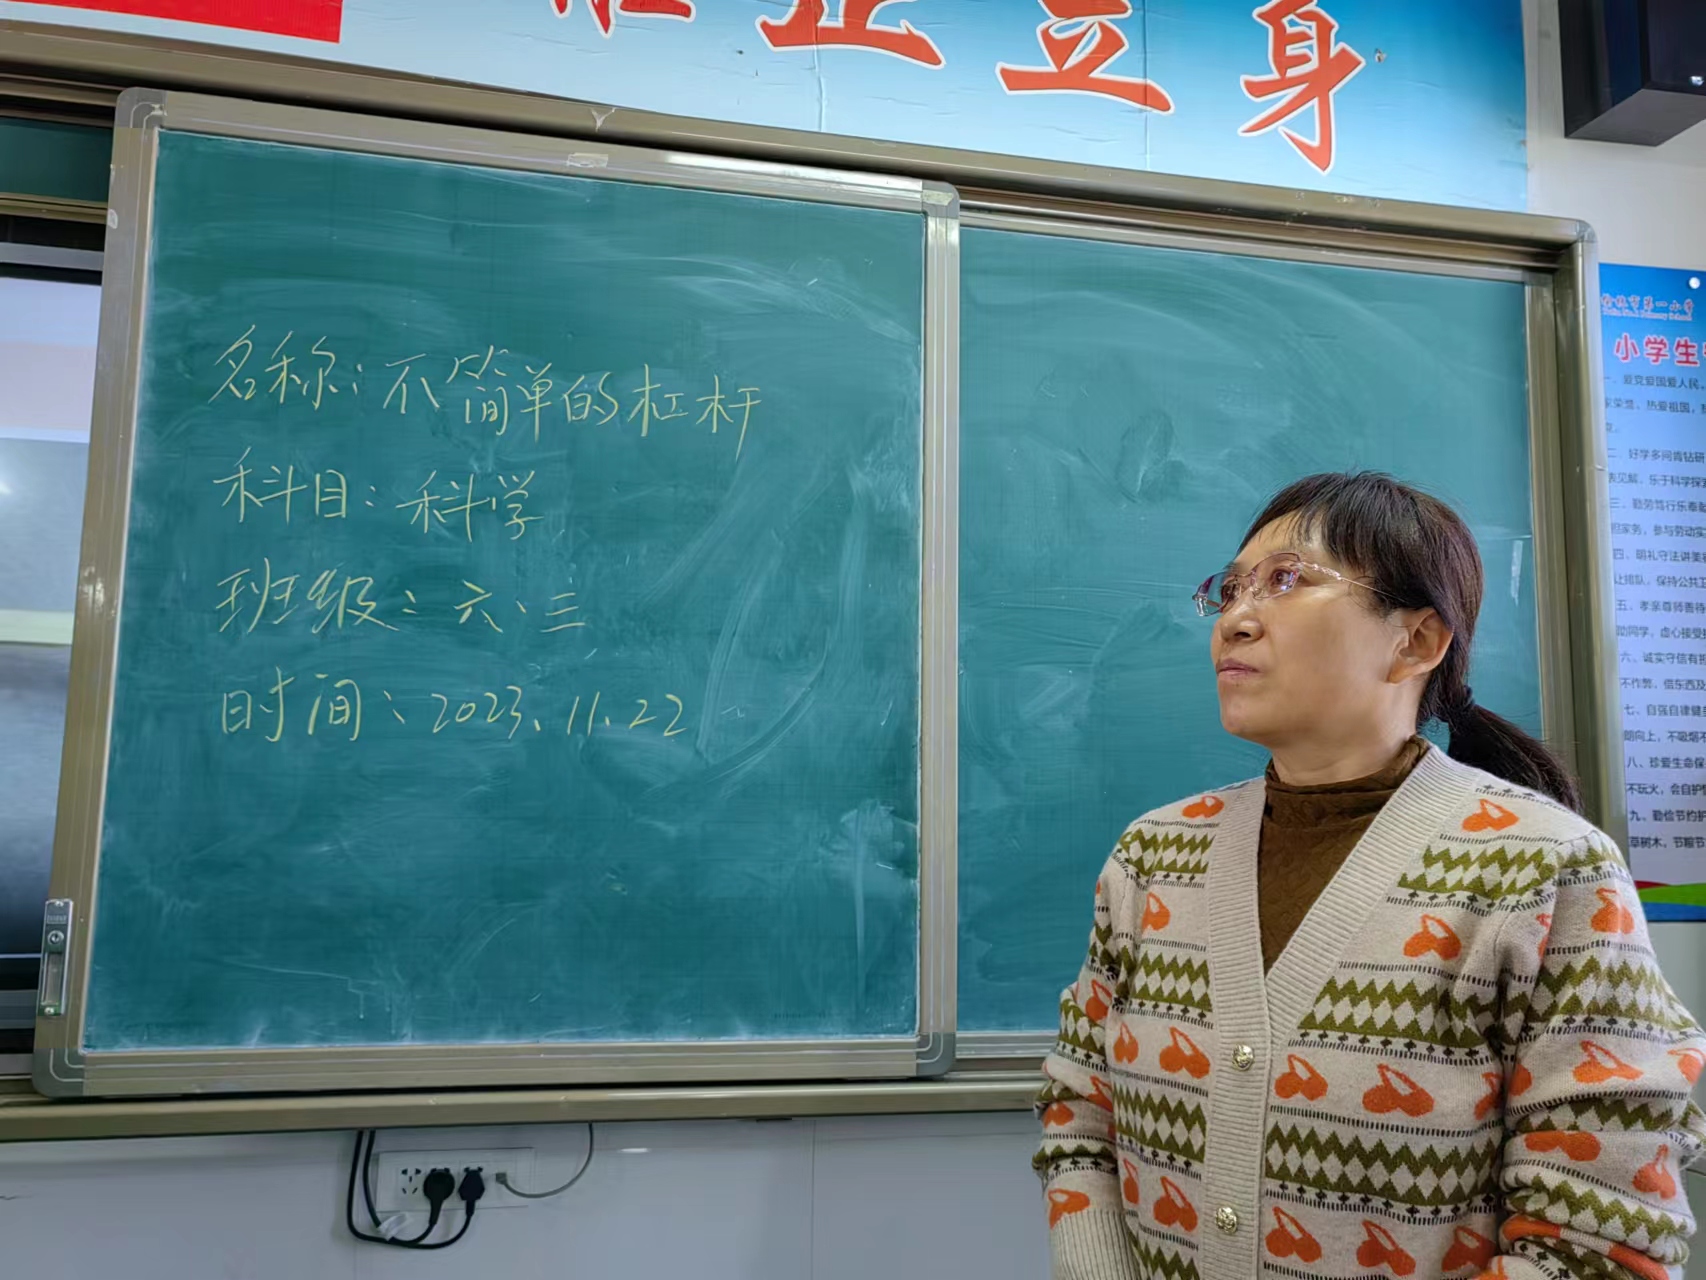 正立身
名称:不简单的杠杆
科目:科学
班级:六、三
时间:2023.11.22
榆林市第一小学
小学生
一、爱党爱国爱人民。
家荣誉、热爱祖国,
二、好学多问肯钻研
表见解,乐于科学探
三、勤劳笃行乐奉
担家务,参与劳动实
四、明礼守法讲美
让排队,保持公共卫
五、孝亲尊师善待
助同学,虚心接受
六、诚实守信有担
不作弊,借东西及
七、自强自律健
朗向上,不吸烟不
八、珍爱生命保
不玩火,会自护
九、勤俭节约护
草树木,节粮节